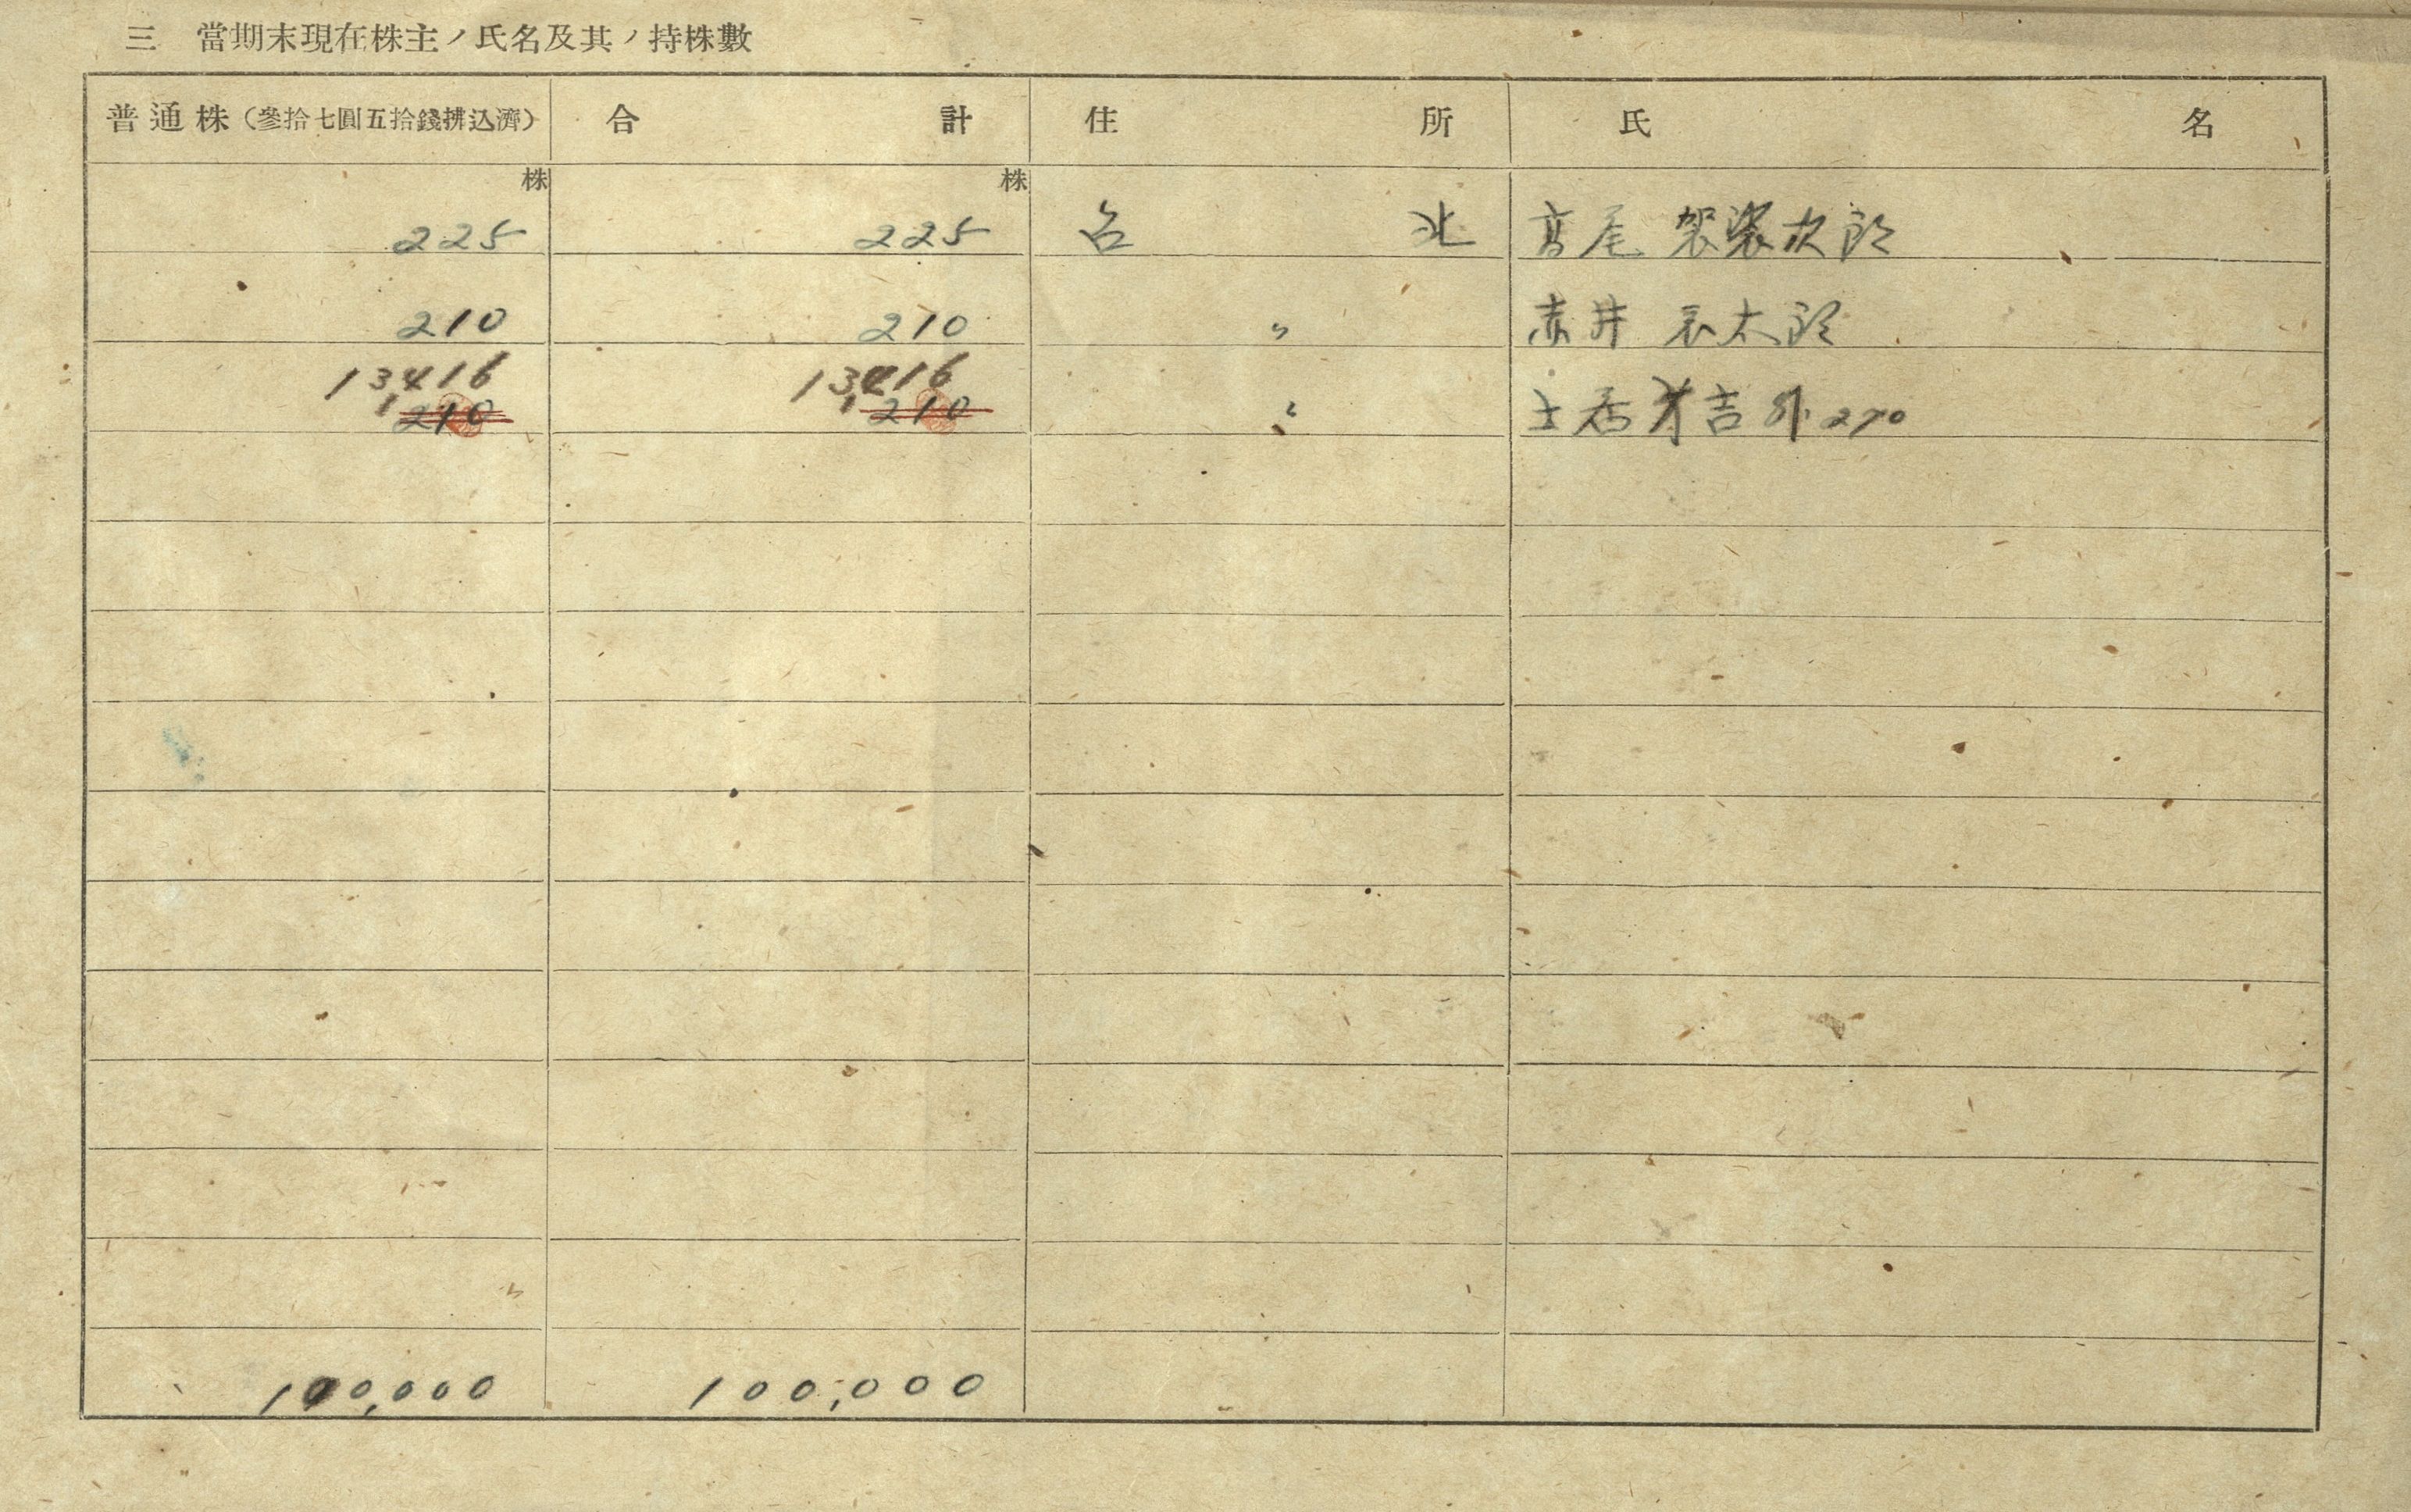 三 當期末現在株主ノ氏名及其ノ持株數
普通株(參拾七圓五拾錢拂込濟) 合計 住所 氏名
株 株
225 225 台北 高尾 袈裟次郎
210 210 〃 赤井 衣太郎
13,416 13,416
210 210 〃 土居 才吉 外270
100,000 100,000